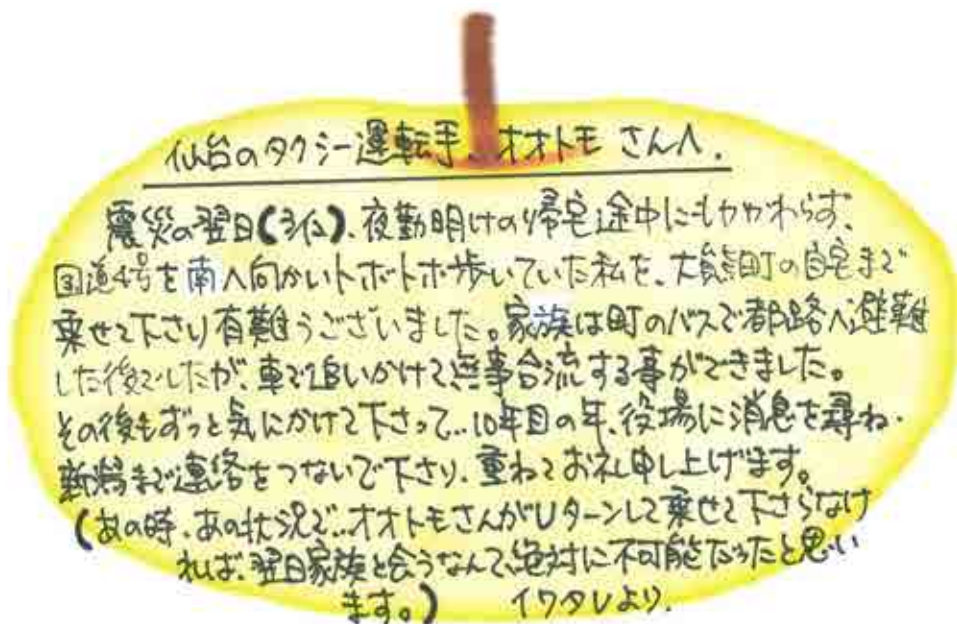 仙台のタクシー運転手、オオトモ さんへ.
震災の翌日(3/12)、夜勤明けの帰宅途中にもかかわらず、
国道4号を南へ向かいトボトボ歩いていた私を、大熊町の自宅まで
乗せて下さり有難うございました。家族は町のバスで都路へ避難
した後でしたが、車で追いかけて無事合流する事ができました。
その後もずっと気にかけて下さって…10年目の年、役場に消息を尋ね、
新潟まで連絡をつないで下さり、重ねてお礼申し上げます。
(あの時、あの状況で…オオトモさんがUターンして乗せて下さらなけ
れば、翌日家族と会うなんて、絶対に不可能だったと思い
ます。) イワタレより.